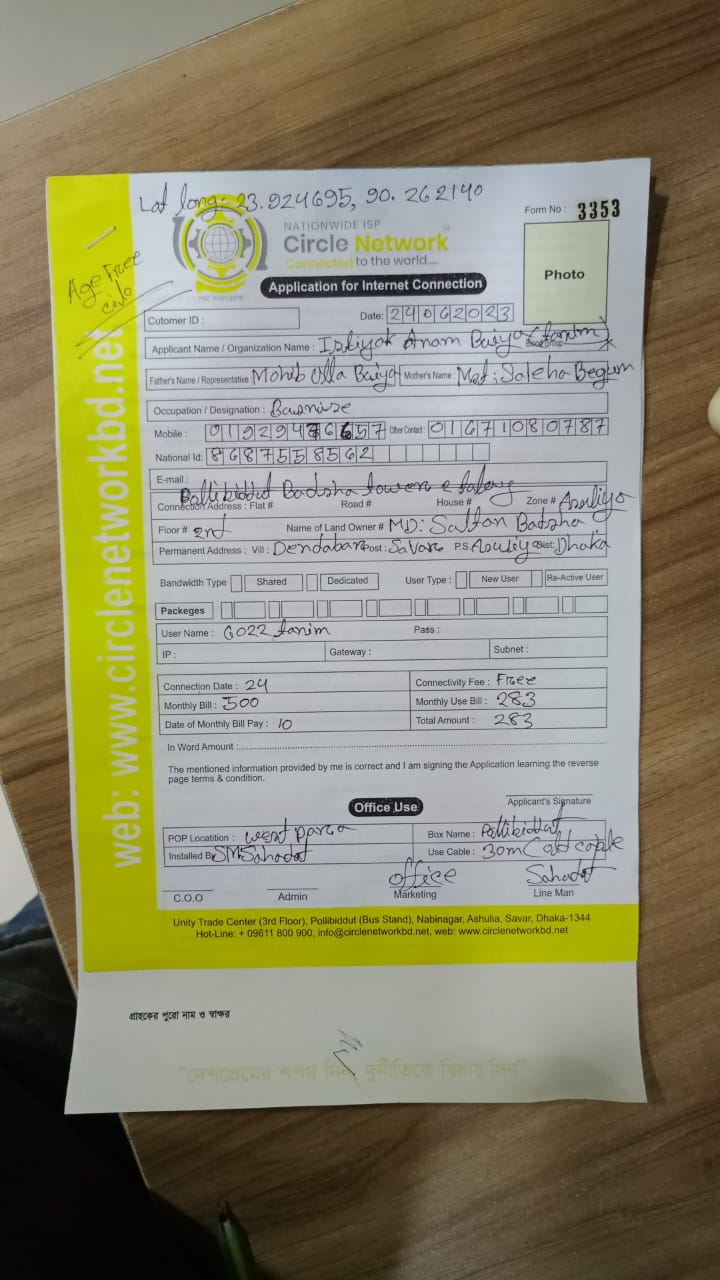 Lat long: 23.924695, 90.262140
Form No : 3353
NATIONWIDE ISP
Circle Network
Connected to the world....
Age Free
Photo
Application for Internet Connection
Cutomer ID :
Date: 24062023
Applicant Name / Organization Name : Istiyak Anam Baiya (tanim)
Father's Name / Representative Mohib Ulla Baiya Mother's Name : Mst: Saleha Begum
Occupation / Designation :
Mobile : 01929476657 Other Contact : 01671080787
National Id: 8687558562
E-mail :
Pallibiddut Badsha tower
Connection Address : Flat # Road # House # Zone # Asuliya
Floor # 2nd Name of Land Owner # MD: Salton Badsha
Permanent Address : Vill : Dendabar Post: Savar P.S. Asuliya Dist: Dhaka
Bandwidth Type Shared Dedicated User Type : New User Re-Active User
Packeges
User Name : G022 tanim Pass :
IP : Gateway : Subnet :
Connection Date : 24 Connectivity Fee : Free
Monthly Bill : 500 Monthly Use Bill : 283
Date of Monthly Bill Pay : 10 Total Amount : 283
In Word Amount :
The mentioned information provided by me is correct and I am signing the Application learning the reverse
page terms & condition.
Applicant's Signature
Office Use
POP Locatition : west para Box Name : Pallibiddut
Installed By SM Sahadat Use Cable : 30m
office Sahadat
C.O.O Admin Marketing Line Man
Unity Trade Center (3rd Floor), Pollibiddut (Bus Stand), Nabinagar, Ashulia, Savar, Dhaka-1344
Hot-Line: + 09611 800 900, info@circlenetworkbd.net, web: www.circlenetworkbd.net
web: www.circlenetworkbd.net
গ্রাহকের পুরো নাম ও স্বাক্ষর
"দেশপ্রেমের শপথ নিন, দুর্নীতিকে বিদায় দিন"